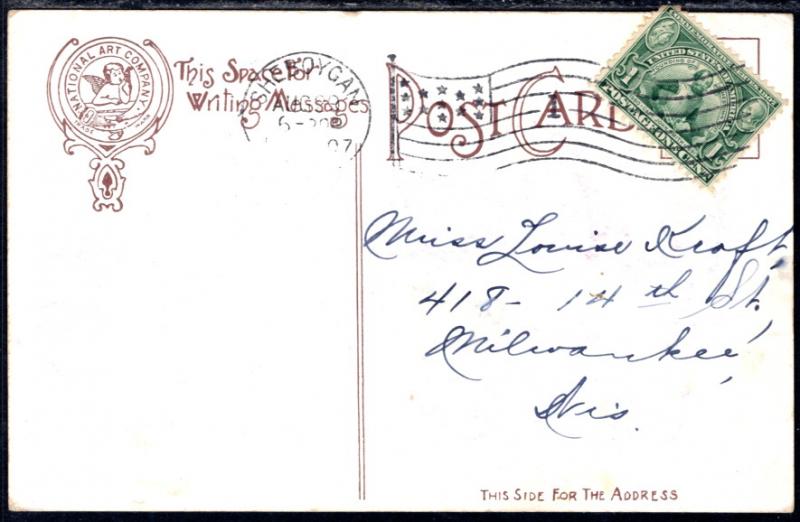 NATIONAL ART COMPANY.
This Space For
Writing Messages
SHEBOYGAN
07
POST CARD
COMMEMORATIVE
UNITED STATES OF AMERICA
POSTAGE ONE CENT
1 1
Miss Louise Kraft,
418- 14th St.,
Milwaukee,
Wis.
THIS SIDE FOR THE ADDRESS